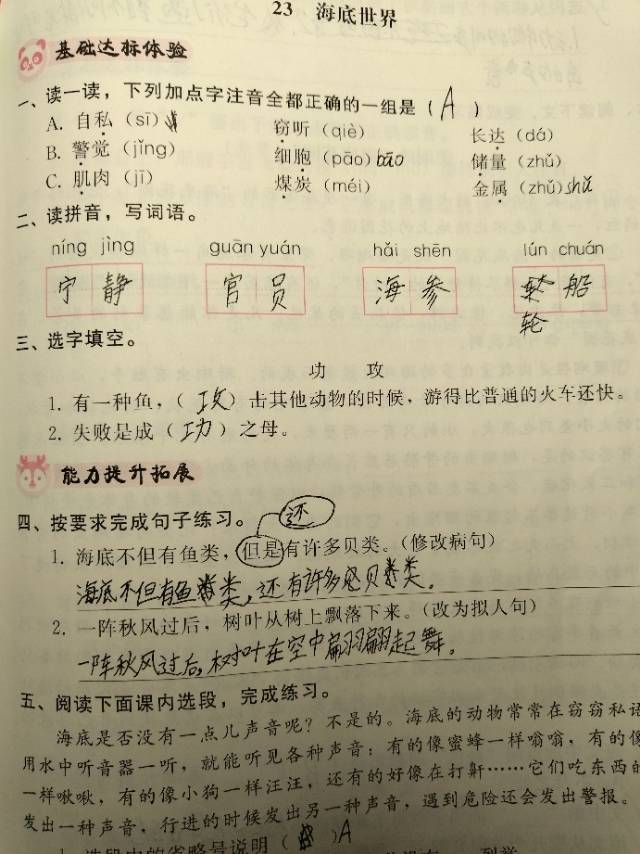 23 海底世界
基础达标体验
一、读一读，下列加点字注音全都正确的一组是（A）
A. 自私（sī） 窃听（qiè） 长达（dá）
B. 警觉（jǐng） 细胞（pāo）bāo 储量（zhǔ）
C. 肌肉（jī） 煤炭（méi） 金属（zhǔ）shǔ
二、读拼音，写词语。
níng jìng guān yuán hǎi shēn lún chuán
宁静 官员 海参 船
轮
三、选字填空。
功 攻
1. 有一种鱼，（攻）击其他动物的时候，游得比普通的火车还快。
2. 失败是成（功）之母。
能力提升拓展
四、按要求完成句子练习。 还
1. 海底不但有鱼类，但是有许多贝类。（修改病句）
海底不但有鱼类，还有许多贝类。
2. 一阵秋风过后，树叶从树上飘落下来。（改为拟人句）
一阵秋风过后，树叶在空中翩翩起舞。
五、阅读下面课内选段，完成练习。
海底是否没有一点儿声音呢？不是的。海底的动物常常在窃窃私语
用水中听音器一听，就能听见各种声音：有的像蜜蜂一样嗡嗡，有的像
一样啾啾，有的像小狗一样汪汪，还有的好像在打鼾……它们吃东西的
发出一种声音，行进的时候发出另一种声音，遇到危险还会发出警报。
选段中的省略号说明（ ）A